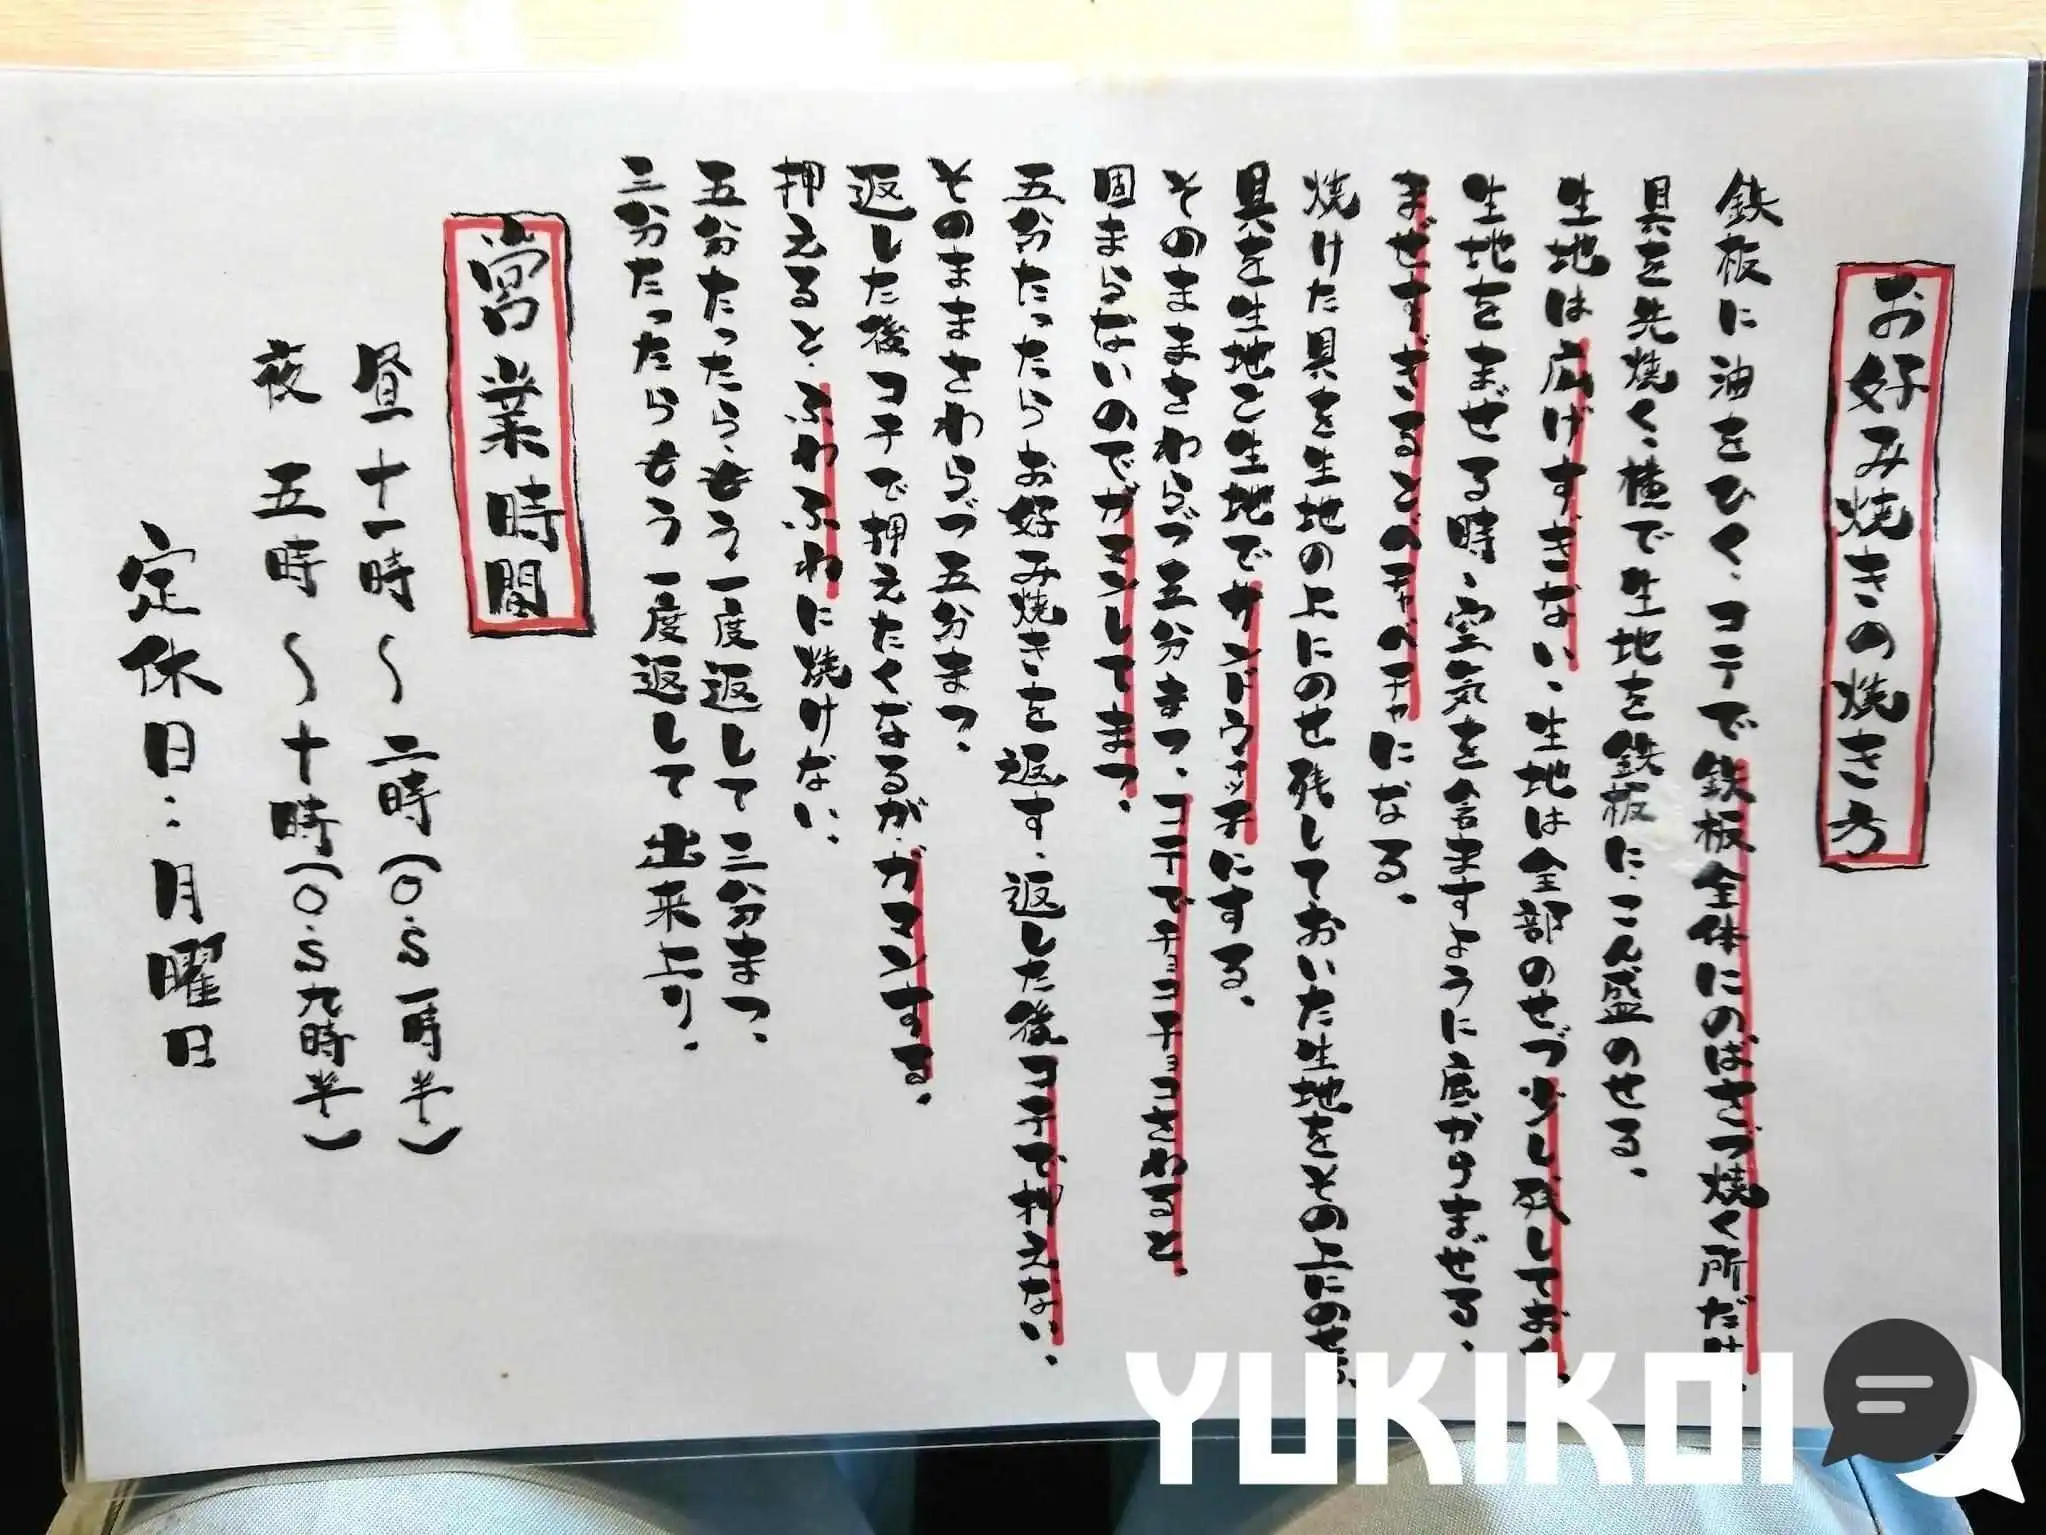 お好み焼きの焼き方
鉄板に油をひく、コテで鉄板全体にのばさづ焼く所だけ、
具を先焼く、横で生地を鉄板に、こん盛のせる、
生地は広げすぎない、生地は全部のせづ少し残しておく、
生地をまぜる時、空気を含ますように底からまぜる、
まぜすぎるとベチャベチャになる、
焼けた具を生地の上にのせ残しておいた生地をその上にのせる、
具を生地と生地でサンドウィッチにする、
そのままさわらづ五分まつ、コテでチョコチョコさわると、
固まらないのでガマンしてまつ、
五分たったらお好み焼きを返す、返した後コテで押えない、
そのままさわらづ五分まつ、
返した後コテで押えたくなるが、ガマンする、
押えると、ふわふわに焼けない、
五分たったら、もう一度返して三分まつ、
三分たったらもう一度返して出来上り、
営業時間
昼 十一時 〜 二時(O.S一時半)
夜 五時 〜 十時(O.S九時半)
定休日：月曜日
YUKIKOI